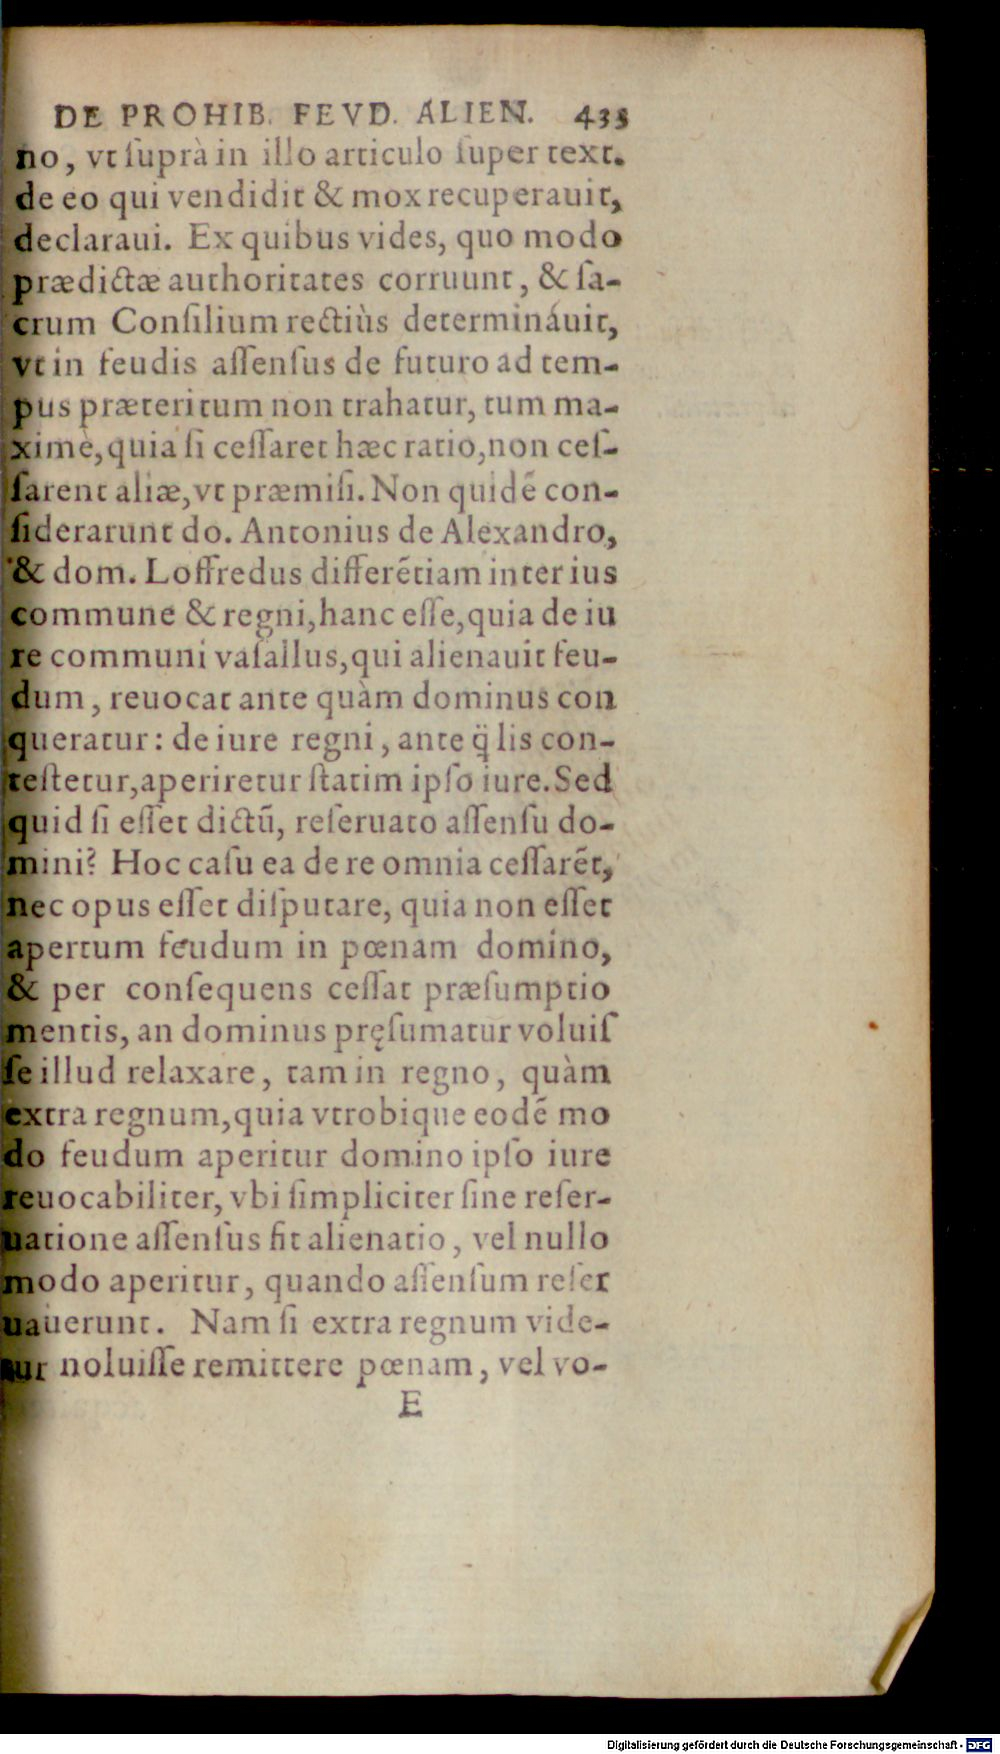 DE PROHIB. FEVD. ALIEN. 433
no, vt ſuprà in illo articulo ſuper text.
de eo qui vendidit & mox recuperauit,
declaraui. Ex quibus vides, quo modo
prædictæ authoritates corruunt, & ſa-
crum Conſilium rectiùs determináuit,
vt in feudis aſſenſus de futuro ad tem-
pus præteritum non trahatur, tum ma-
ximè, quia ſi ceſſaret hæc ratio, non ceſ-
ſarent aliæ, vt præmiſi. Non quidē con-
ſiderarunt do. Antonius de Alexandro,
& dom. Loffredus differētiam inter ius
commune & regni, hanc eſſe, quia de iu
re communi vaſallus, qui alienauit feu-
dum, reuocat ante quàm dominus con
queratur: de iure regni, ante q̃ lis con-
teſtetur, aperiretur ſtatim ipſo iure. Sed
quid ſi eſſet dictū, reſeruato aſſenſu do-
mini? Hoc caſu ea de re omnia ceſſarēt,
nec opus eſſet diſputare, quia non eſſet
apertum feudum in pœnam domino,
& per conſequens ceſſat præſumptio
mentis, an dominus pręſumatur voluiſ
ſe illud relaxare, tam in regno, quàm
extra regnum, quia vtrobique eodē mo
do feudum aperitur domino ipſo iure
reuocabiliter, vbi ſimpliciter ſine reſer-
uatione aſſenſus fit alienatio, vel nullo
modo aperitur, quando aſſenſum reſer
uauerunt. Nam ſi extra regnum vide-
tur noluiſſe remittere pœnam, vel vo-
E
Digitalisierung gefördert durch die Deutsche Forschungsgemeinschaft - DFG